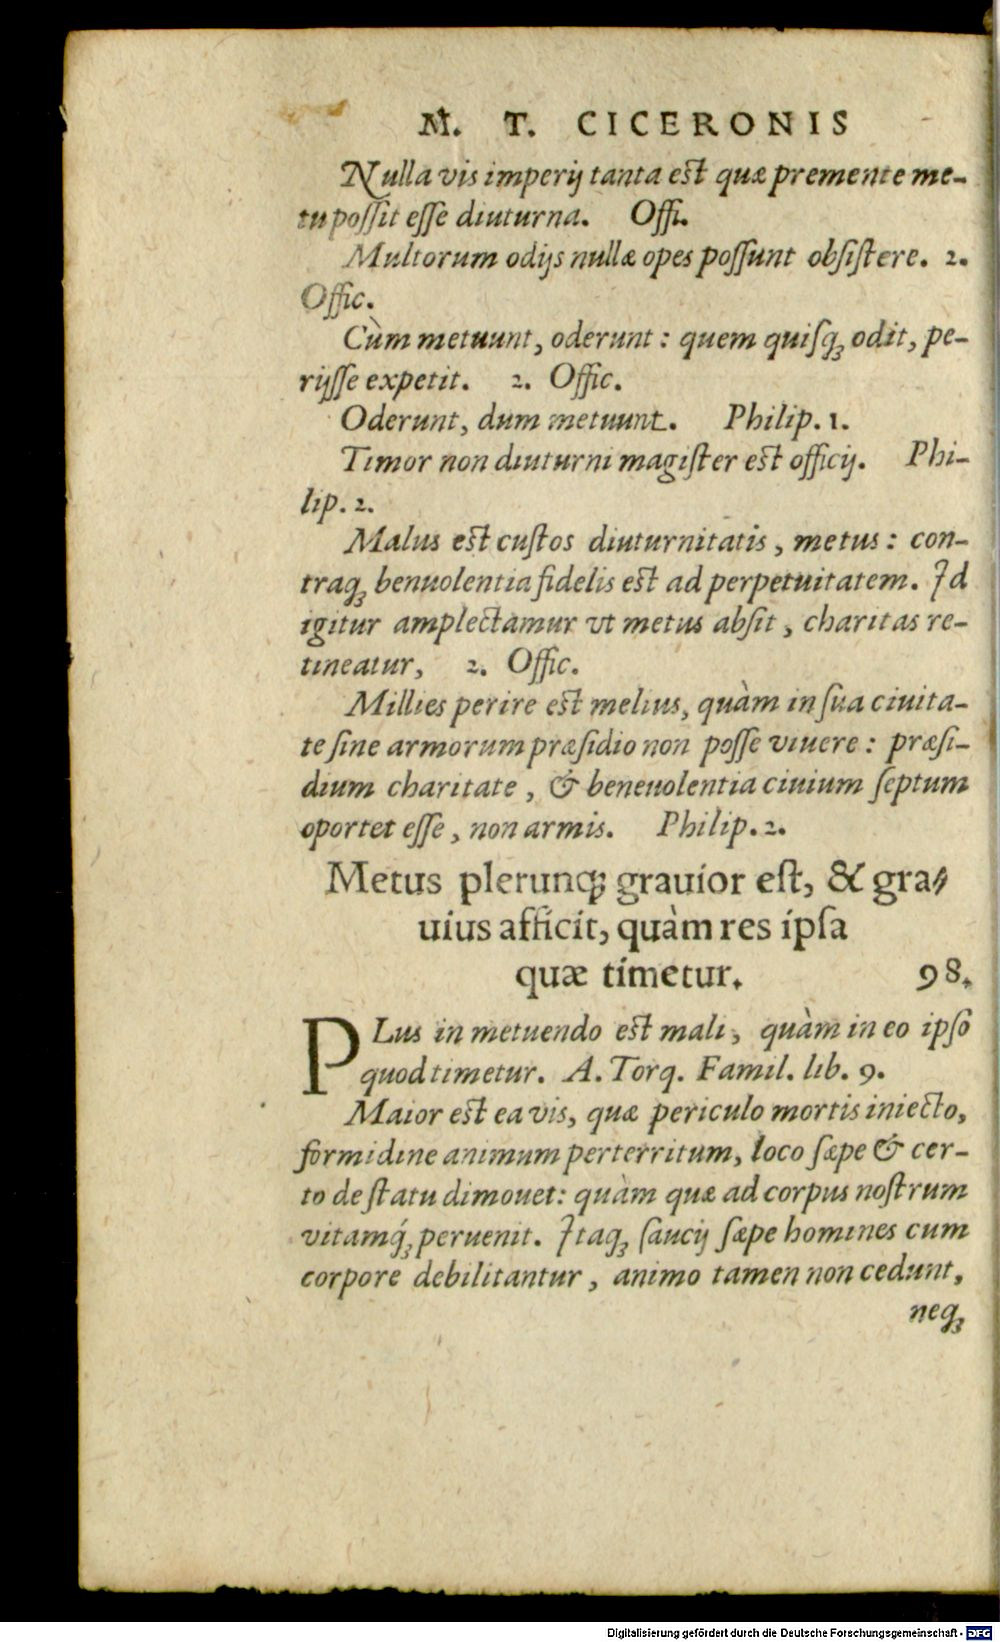 M. T. CICERONIS
Nulla vis imperij tanta est quæ premente me-
tu poſſit eſſe diuturna. Offi.
Multorum odijs nullæ opes poſſunt obſiſtere. 2.
Offic.
Cùm metuunt, oderunt: quem quiſqꝫ odit, pe-
rijſſe expetit. 2. Offic.
Oderunt, dum metuunt. Philip. 1.
Timor non diuturni magiſter eſt officij. Phi-
lip. 2.
Malus eſt cuſtos diuturnitatis, metus: con-
traqꝫ benuolentia fidelis eſt ad perpetuitatem. Id
igitur amplectamur vt metus abſit, charitas re-
tineatur, 2. Offic.
Millies perire eſt melius, quàm in ſua ciuita-
te ſine armorum præſidio non poſſe viuere: præſi-
dium charitate, & beneuolentia ciuium ſeptum
oportet eſſe, non armis. Philip. 2.
Metus plerunqꝫ grauior eſt, & gra-
uius afficit, quàm res ipſa
quæ timetur. 98.
PLus in metuendo eſt mali, quàm in eo ipſo
quod timetur. A. Torq. Famil. lib. 9.
Maior eſt ea vis, quæ periculo mortis iniecto,
formidine animum perterritum, loco ſæpe & cer-
to de ſtatu dimouet: quàm quæ ad corpus noſtrum
vitamq́ꝫ peruenit. Itaqꝫ ſaucij ſæpe homines cum
corpore debilitantur, animo tamen non cedunt,
neqꝫ
Digitalisierung gefördert durch die Deutsche Forschungsgemeinschaft - DFG